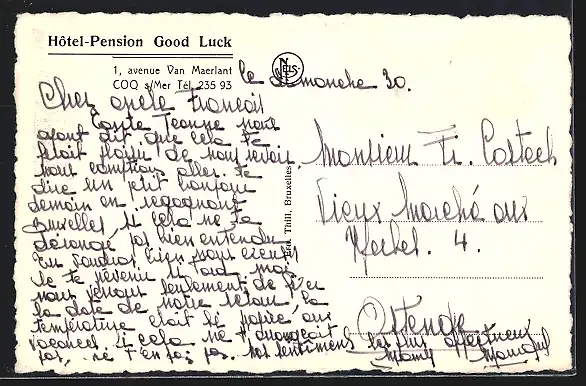 Hôtel-Pension Good Luck
1, avenue Van Maerlant
COQ s/Mer Tél. 235 93
NELS
le dimanche 30.
Cher oncle François
Tante Jeanne nous
ayant dit que cela te
ferait plaisir de nous revoir,
nous comptions aller te
dire un p'tit bonjour
demain en regagnant
Bruxelles, si cela ne te
dérange pas bien entendu
En voudras bien nous excuser
de te prévenir si tard, mais
nous venons seulement de fixer
la date de notre retour, la
température étant si propice aux
vacances. Si cela ne t'arrangeait
pas, ne t'en fais pas. Nos sentiments les plus affectueux
Ern. Thill, Bruxelles
Monsieur Fr.
Vieux Marché aux
4.
Ostende